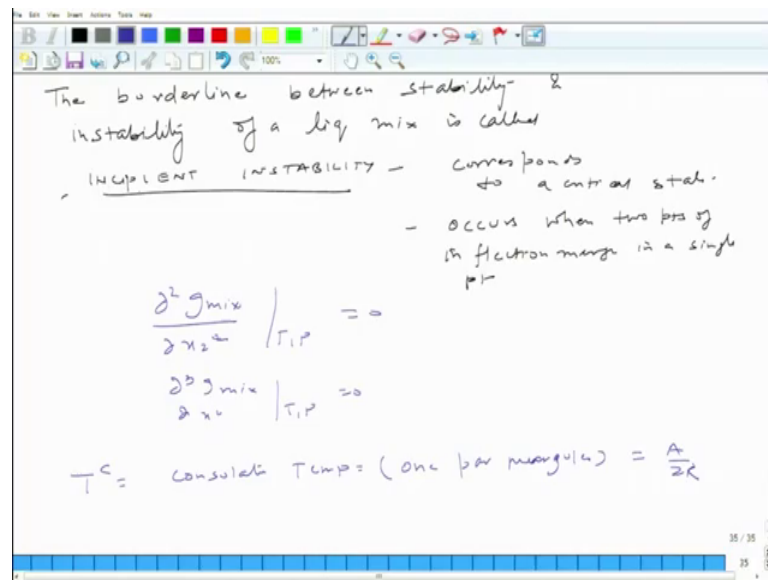 File Edit View Insert Actions Tools Help
B I
100%
The borderline between stability &
instability of a liq mix is called
INCIPIENT INSTABILITY - corresponds
to a critical stab.
- occurs when two pts of
inflection merge in a single
pt
∂² gmix / ∂x₂² |T,P = 0
∂³ gmix / ∂x₂ |T,P = 0
T^c = consolate Temp = (one par margules) = A/2R
35 / 35
35